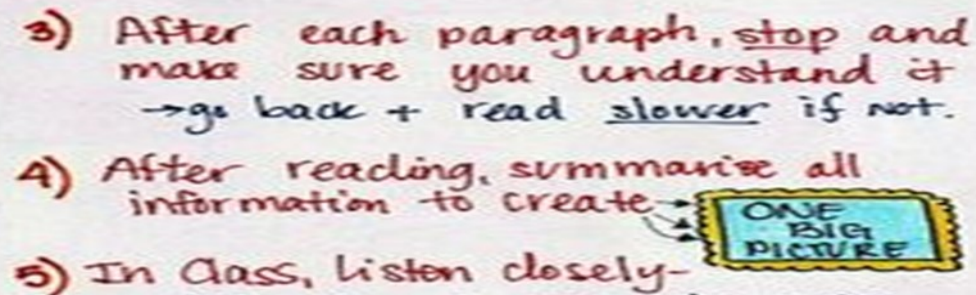 3) After each paragraph, stop and
make sure you understand it
→go back + read slower if not.
4) After reading, summarize all
information to create
ONE
BIG
PICTURE
5) In Class, listen closely-